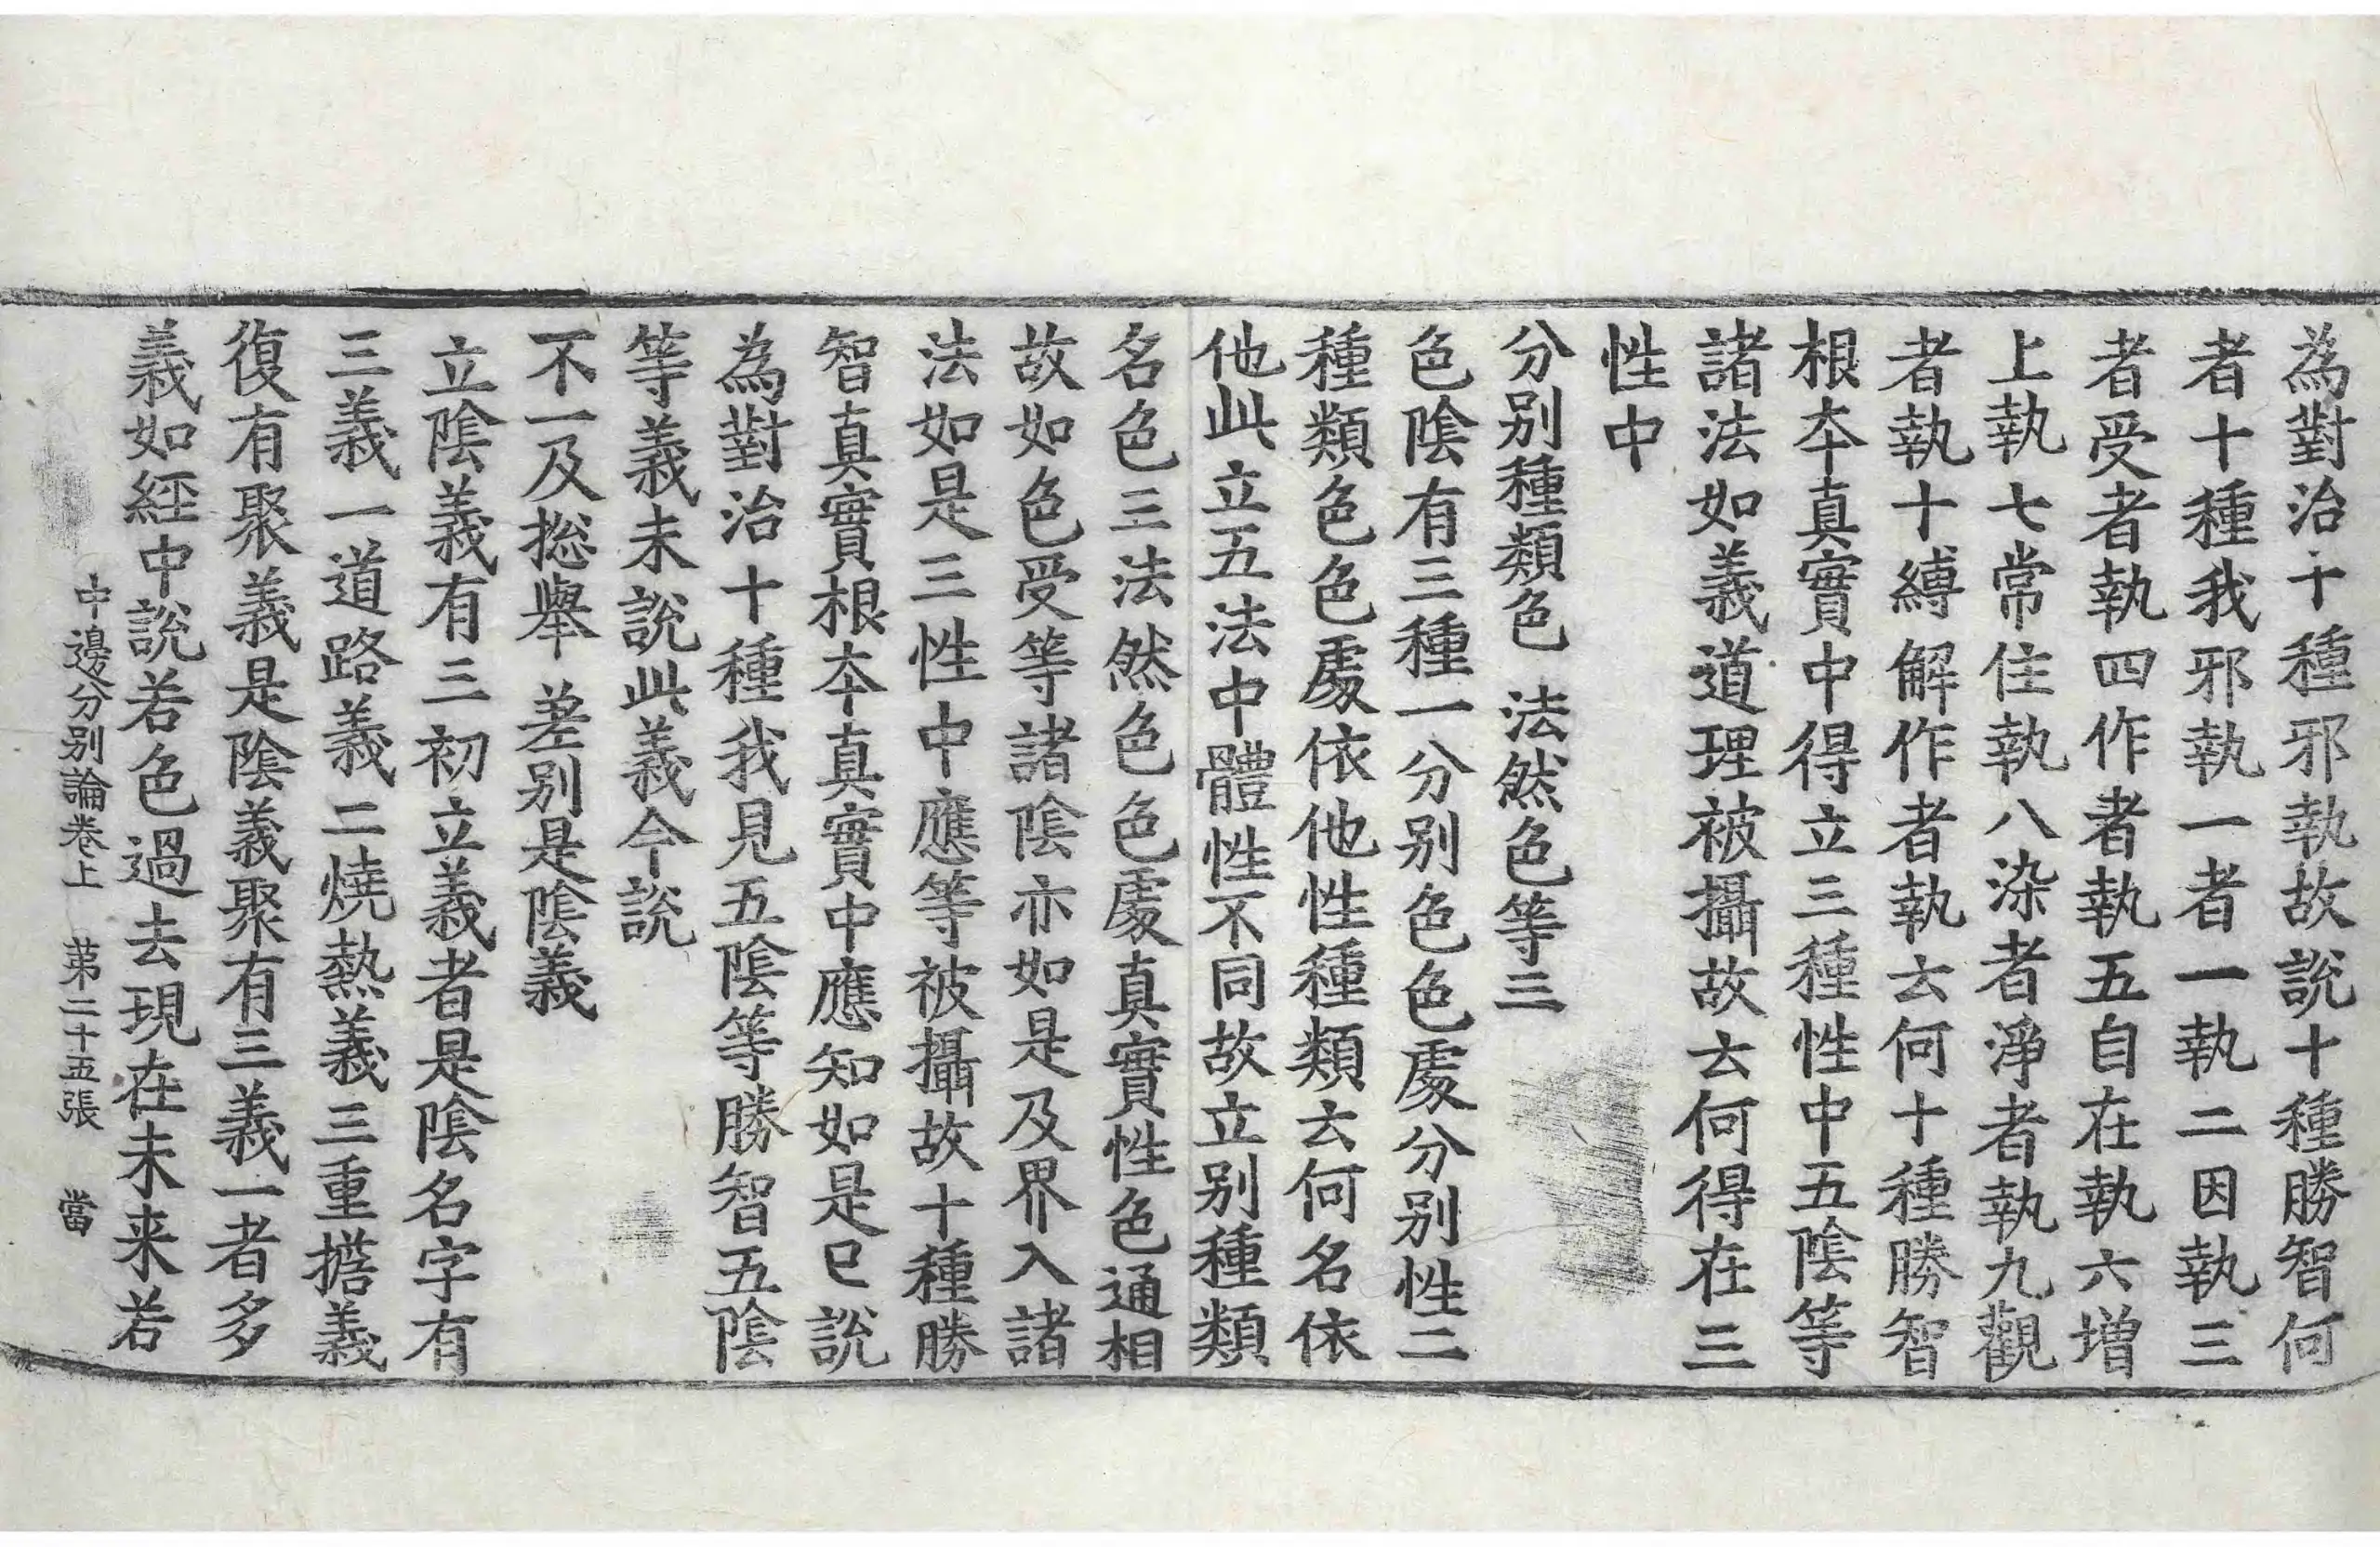 為對治十種邪執故說十種勝智何
者十種我邪執一者一執二因執三
者受者執四作者執五自在執六増
上執七常住執八染者淨者執九觀
者執十縛解作者執云何十種勝智
根夲真實中得立三種性中五陰等
諸法如義道理被攝故云何得在三
性中
分别種類色 法然色等三
色陰有三種一分别色色處分别性二
種類色色處依他性種類云何名依
他此立五法中體性不同故立别種類
名色三法然色色處真實性色通相
故如色受等諸陰亦如是及界入諸
法如是三性中應等被攝故十種勝
智真實根夲真實中應知如是已說
為對治十種我見五陰等勝智五陰
等義未說此義今說
不一及揔舉 差别是陰義
立陰義有三初立義者是陰名字有
三義一道路義二燒熱義三重擔義
復有聚義是陰義聚有三義一者多
義如經中說若色過去現在未来若
中邊分别論卷上 苐二十五張 當